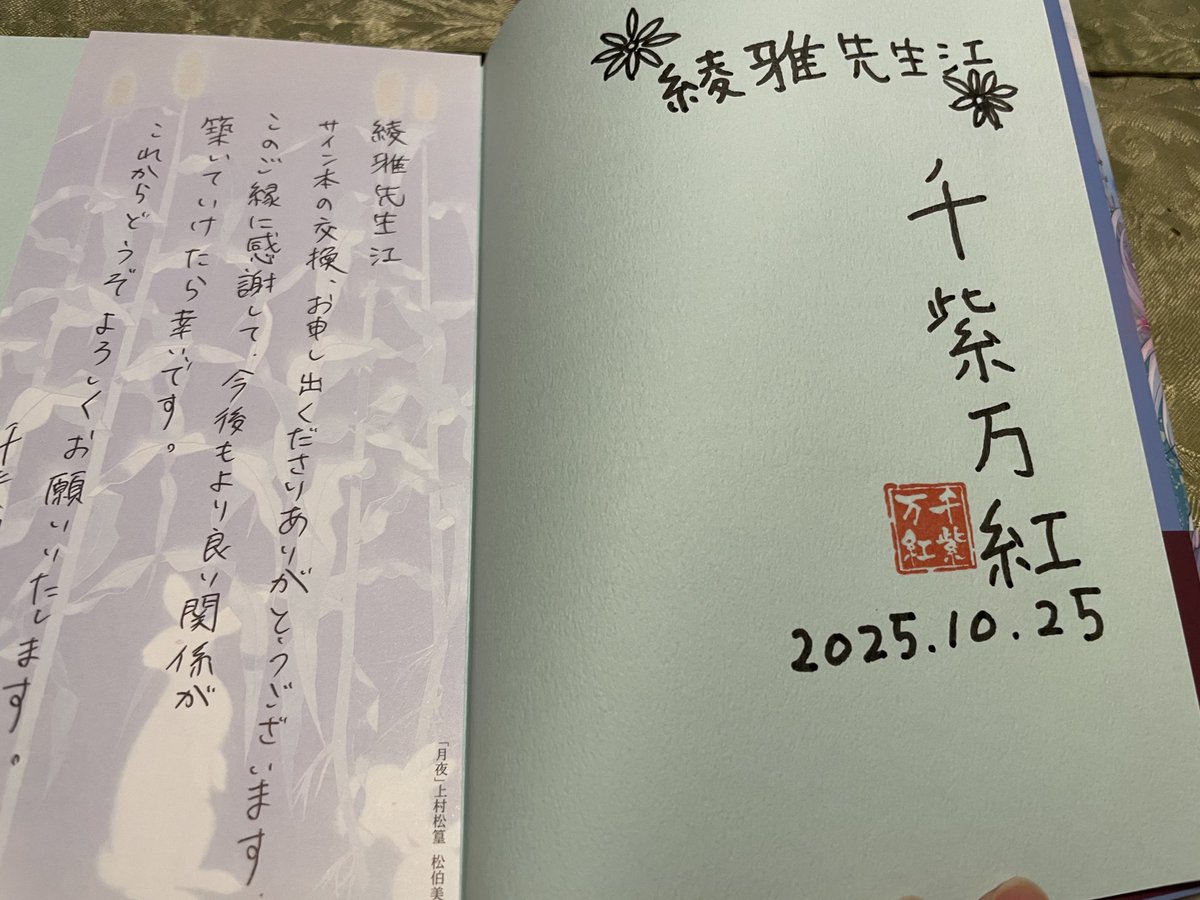 綾雅先生江
千紫万紅
千紫
万紅
2025.10.25
綾雅先生江
サイン本の交換、お申し出くださりありがとうございます.
このご縁に感謝して、今後もより良い関係が
築いていけたら幸いです。
これからどうぞよろしくお願いいたします。
千
「月夜」上村松篁 松伯美